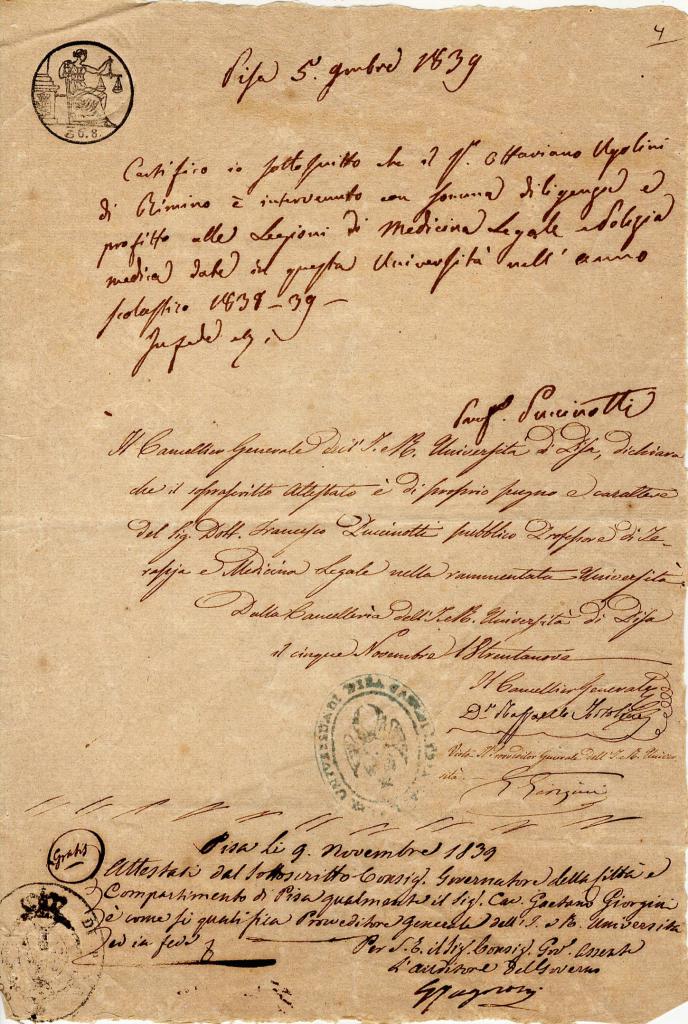 4
Pisa 5. 9mbre 1839
Certifico io sottoscritto che il Sr. Ottaviano Ugolini
di Rimino è intervenuto con somma diligenza e
profitto alle Lezioni di Medicina Legale e Polizia
medica date in questa Università nell' anno
scolastico 1838-39-
In fede
Prof. Puccinotti
Il Cancellier Generale dell' I. e R. Università di Pisa, dichiara
che il soprascritto Attestato è di proprio pugno e carattere
del Sig. Dott. Francesco Puccinotti pubblico Professore di Te-
rapia e Medicina Legale nella rammentata Università
Dalla Cancelleria dell' I. e R. Università di Pisa
il cinque Novembre 18trentanove
Il Cancellier Generale
Dr. Raffaello
Visto Il Provveditor Generale dell' I. e R. Univer-
sità
G. Giorgini
UNIVERSITÀ DI PISA
Gratis
Pisa li 9. Novembre 1839
Attestasi dal Sottoscritto Consig. Governatore della Città e
Compartimento di Pisa qualmente il Sig. Cav. Gaetano Giorgini
è come si qualifica Provveditore Generale dell' I. e R. Università
ed in fede
Per S. E. il Sig. Consig. Gov. assente
L'auditore del Governo